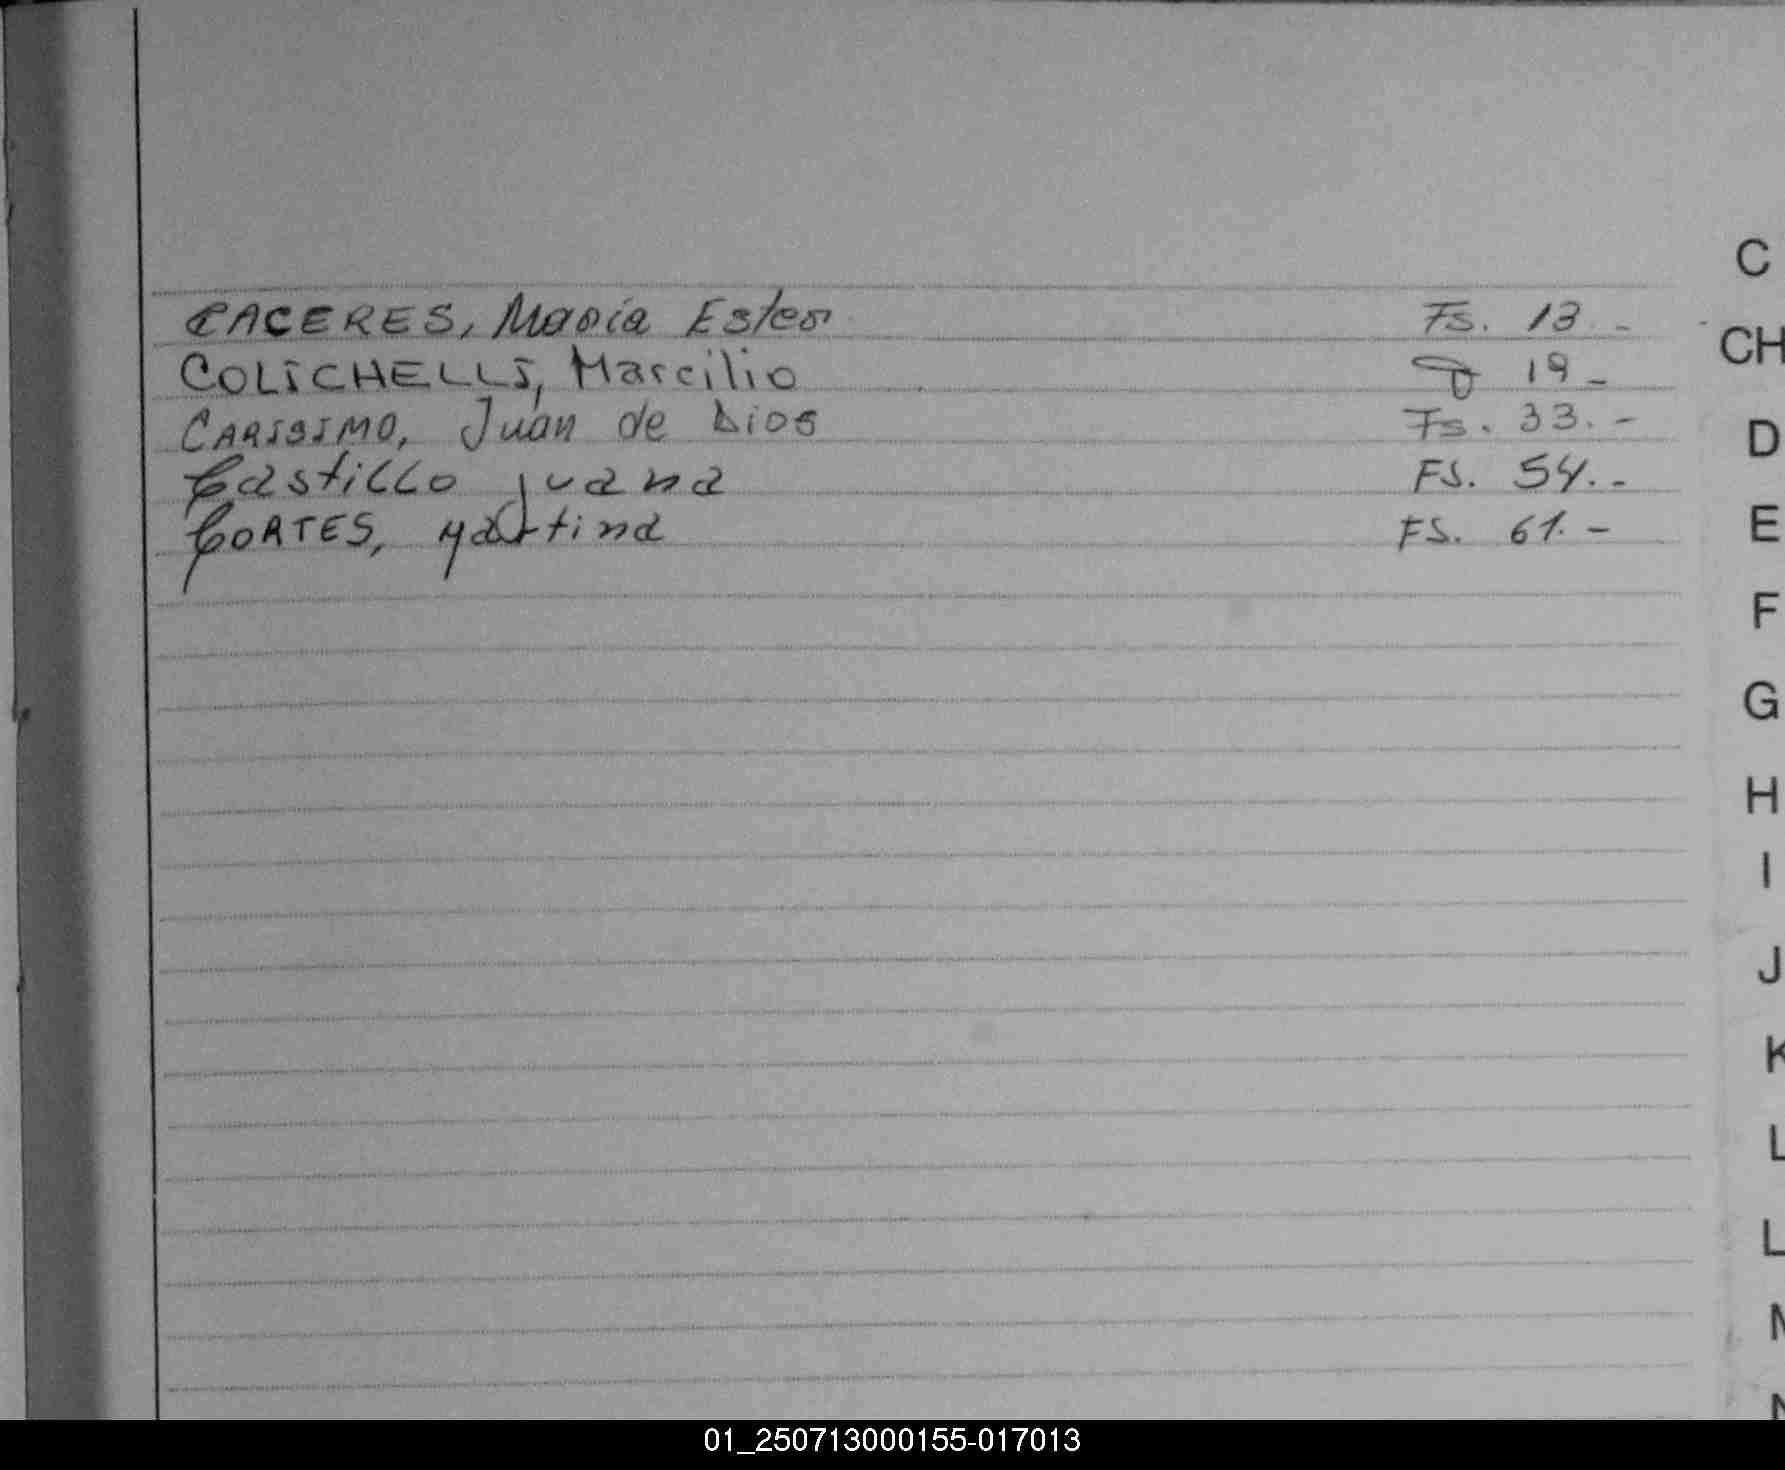 C
CACERES, María Ester Fs. 13.-
CH
COLICHELLI, Marcilio 19-
CARISSIMO, Juan de Dios Fs. 33.-
D
Castillo Juana FS. 54.-
CORTES, Martina FS. 61.-
E
F
G
H
I
J
K
L
L
M
N
01_250713000155-017013